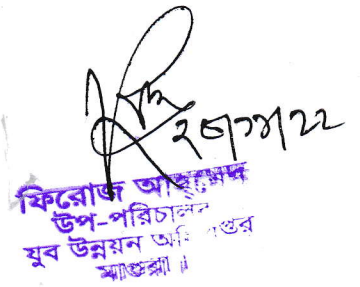 ২৫/১১/২২
ফিরোজ আহমেদ
উপ-পরিচালক
যুব উন্নয়ন অধিদপ্তর
মাগুরা।